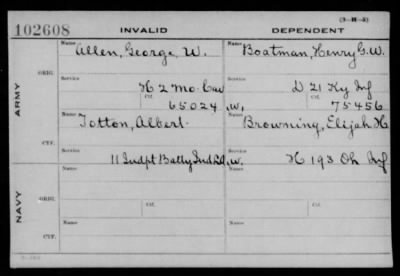 (3-M-5)
102608 INVALID DEPENDENT
Name Name
Allen, George W. Boatman, Henry G.W.
ORIG.
Service Service
H 2 Mo Cav D 21 Ky Inf
Ctf. Ctf.
65024 W. 75456
ARMY
Name Name
Totton, Albert Browning, Elijah H
CTF.
Service Service
11 Indpt Batty Ind W. H 193 Oh Inf
Name Name
ORIG.
Service Ctf. Service Ctf.
NAVY
Name Name
CTF.